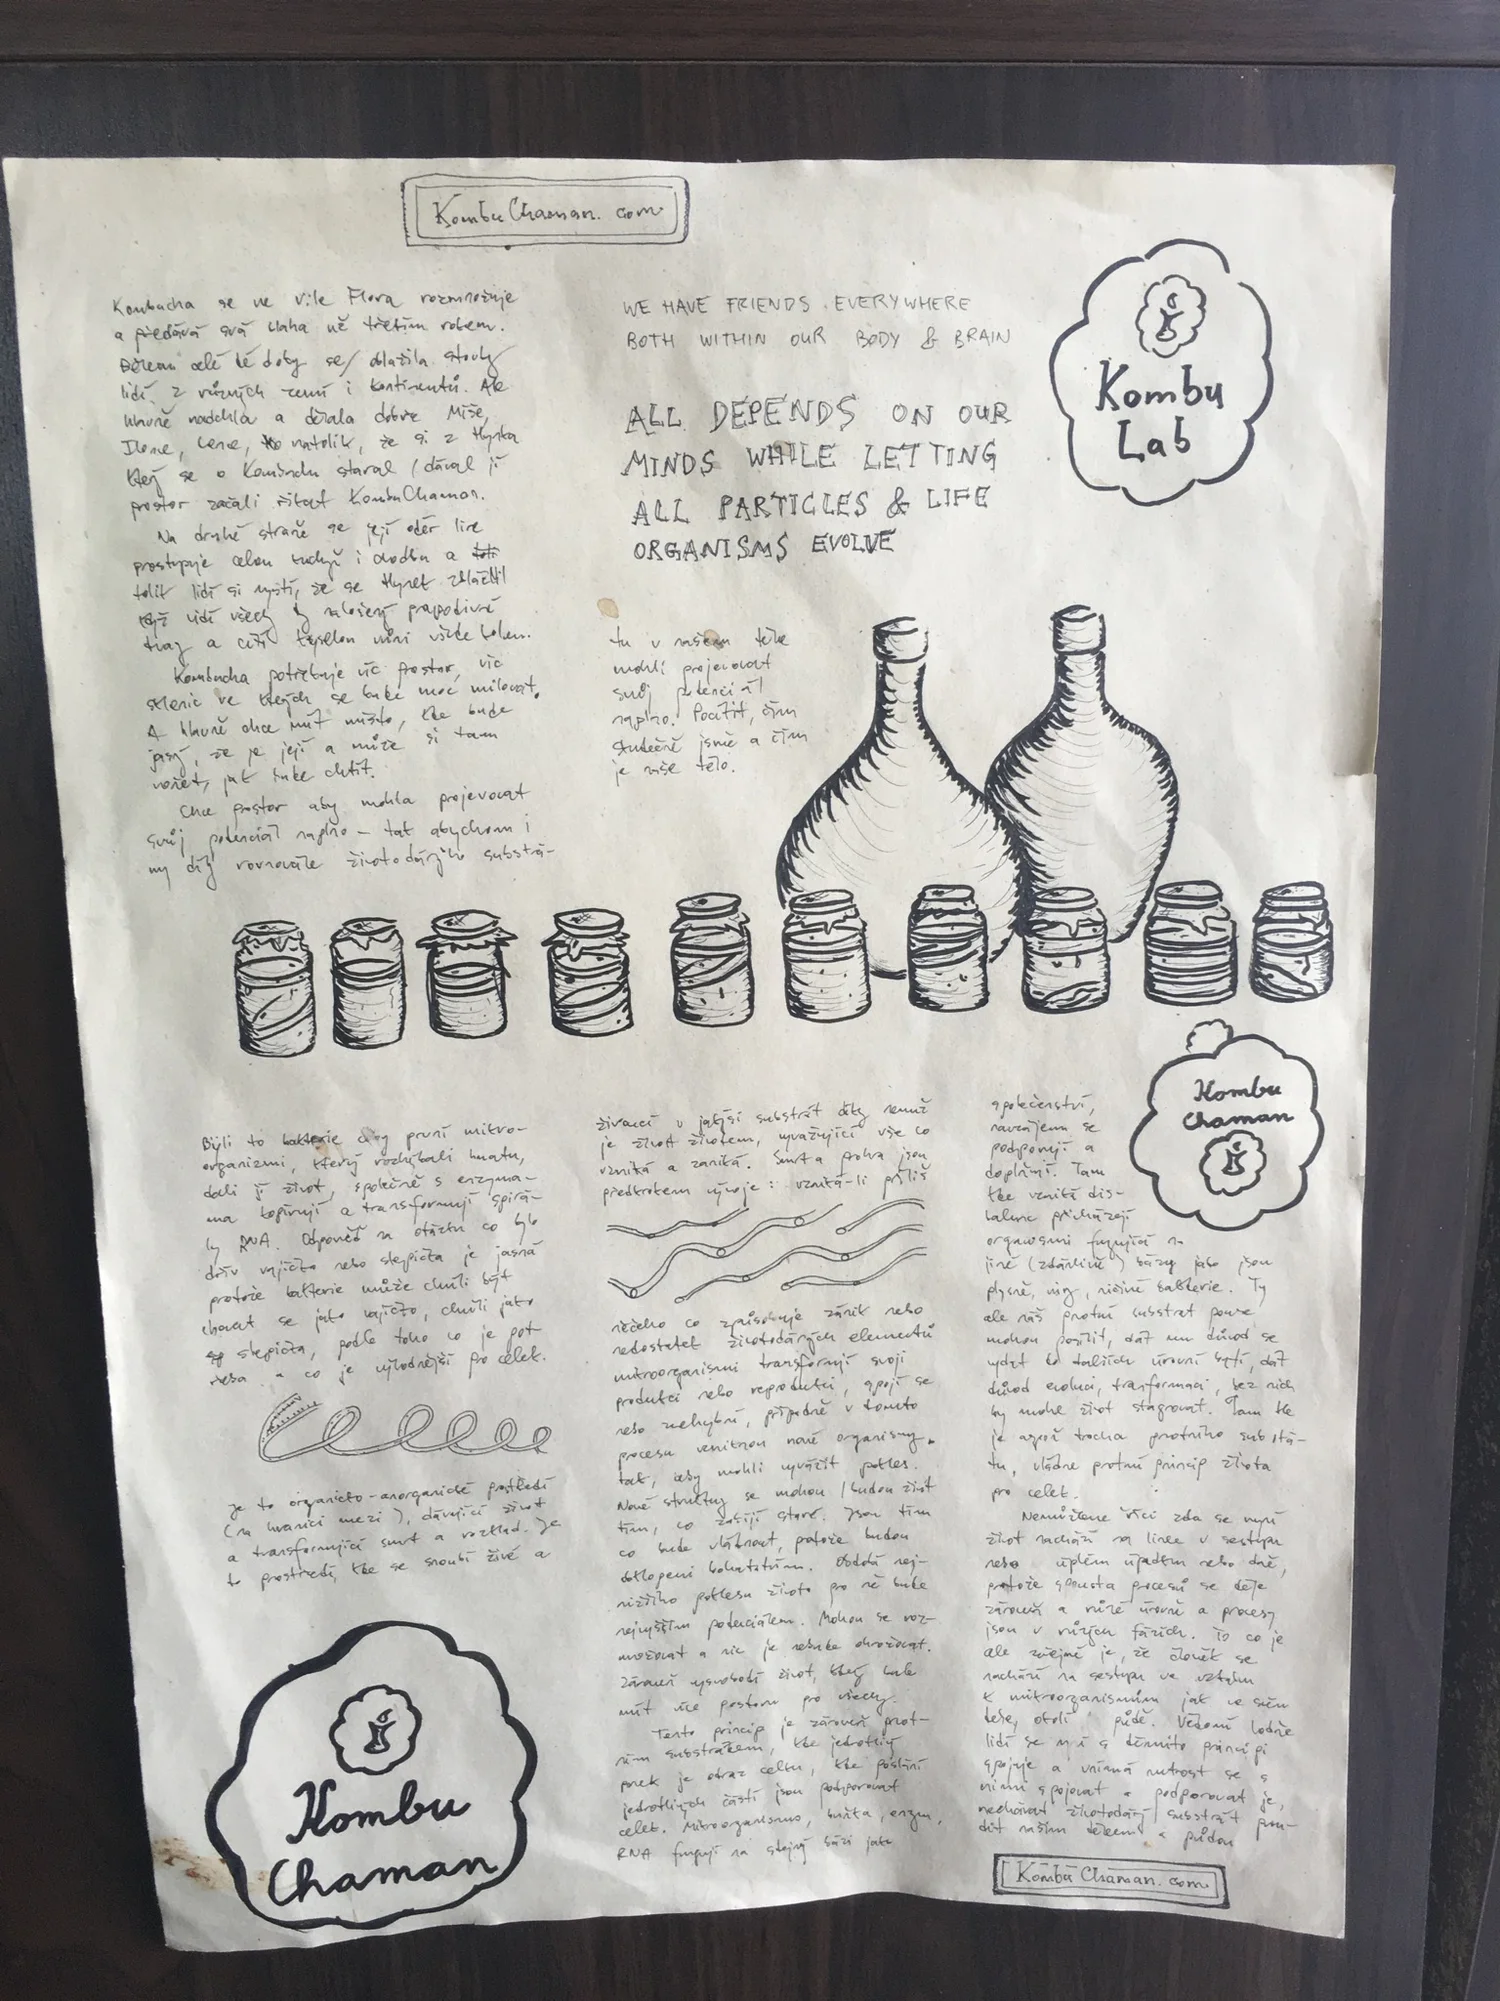 KombuChaman.com
Kombucha se ve vile Flora rozmnožuje
a předává svá blaha už třetím rokem.
Během celé té doby se/ oblažila stovky
lidí z různých zemí i kontinentů. Ale
hlavně nadchla a dělala dobře Míše,
Ilone, Lence, natolik, že si z Hynka
který se o Kombuchu staral / dával jí
prostor začali říkat KombuChaman.
Na druhé straně se její odér line
prostupuje celou kuchyň i chodbu a
tolik lidí si myslí, že se Hynek zbláznil
když vidí všechny naložený prapodivné
tvary a cítí kyselou vůni všude kolem.
Kombucha potřebuje víc prostor, víc
sklenic ve kterých se bude moc milovat.
A hlavně chce mít místo, kde bude
jasný, že je její a může si tam
vonět, jak bude chtít.
Chce prostor aby mohla projevovat
svůj potenciál naplno – tak abychom i
my díky rovnováze životodárnýho substrá-
WE HAVE FRIENDS EVERYWHERE
BOTH WITHIN OUR BODY & BRAIN
ALL DEPENDS ON OUR
MINDS WHILE LETTING
ALL PARTICLES & LIFE
ORGANISMS EVOLVE
tu v našem těle
mohli projevovat
svůj potenciál
naplno. Pocítit, čím
skutečně jsme a čím
je naše tělo.
Kombu
Lab
Kombu
Chaman
Byli to bakterie díky první mikro-
organizmi, který rozhýbali hmotu,
dali jí život, společně s enzyma-
ma kopírují a transformují spirá-
ly RNA. Odpověď na otázku co bylo
dřív vajíčko nebo slepička je jasná
protože bakterie může chvíli být
chovat se jako vajíčko, chvíli jako
slepička, podle toho co je pot-
řeba a co je výhodnější pro celek.
Je to organicko-anorganické prostředí
(na hranici mezi), dávající život
a transformující smrt a rozklad. Je
to prostředí, kde se snoubí živé a
Kombu
Chaman
živoucí v jakýsi substrát díky němuž
je život životem, vyvažující vše co
vzniká a zaniká. Smrt a prohra jsou
předkrokem vývoje: vzniká-li příliš
něčeho co způsobuje zánik nebo
nedostatek životodárných elementů
mikroorganismi transformují svoji
produkci nebo reprodukci, spojí se
nebo znehybní, případně v tomto
procesu vzniknou nové organismy.
tak, aby mohli vyvážit pokles.
Nové struktury se mohou / budou živit
tím, co zabíjí staré. Jsou tím
co bude vládnout, protože budou
obklopeni bohatstvím. Období nej-
nižšího poklesu života pro ně bude
nejvyšším potenciálem. Mohou se roz-
množovat a nic je nebude ohrožovat.
Zároveň vysvobodí život, který bude
mít více prostoru pro všechny.
Tento princip je zároveň prvot-
ním substrátem, kde jednotlivý
prvek je odraz celku, kde poslání
jednotlivých částí jsou podporovat
celek. Mikroorganismo, buňka, enzym,
RNA fungují na stejný bázi jako
společenství,
navzájem se
podporují a
doplňují. Tam
kde vzniká dis-
balanc přicházejí
organismi fungující na
jiné (zdánlivě) bázy jako jsou
plísně, viry, ničivé bakterie. Ty
ale náš prvotní substrát pouze
mohou posílit, dát mu důvod se
vydat do dalších úrovní bytí, dát
důvod evoluci, transformaci, bez nich
by mohl život stagnovat. Tam kde
je aspoň trocha prvotního substrá-
tu, vládne prvotní princip života
pro celek.
Nemůžeme říci zda se nyní
život nachází na lince v sestupu
nebo úplném úpadku nebo dně,
protože spousta procesů se děje
zároveň a různé úrovně a procesy
jsou v různých fázích. To co je
ale zřejmé je, že člověk se
nachází na sestupu ve vztahu
k mikroorganismům jak ve svém
těle, okolí půdě. Vědomí
lidí se nyní s těmito principi
spojuje a vnímá nutnost se s
nimi spojovat a podporovat je,
nechávat životodárný substrát prou-
dit našim tělem a půdou
KombuChaman.com